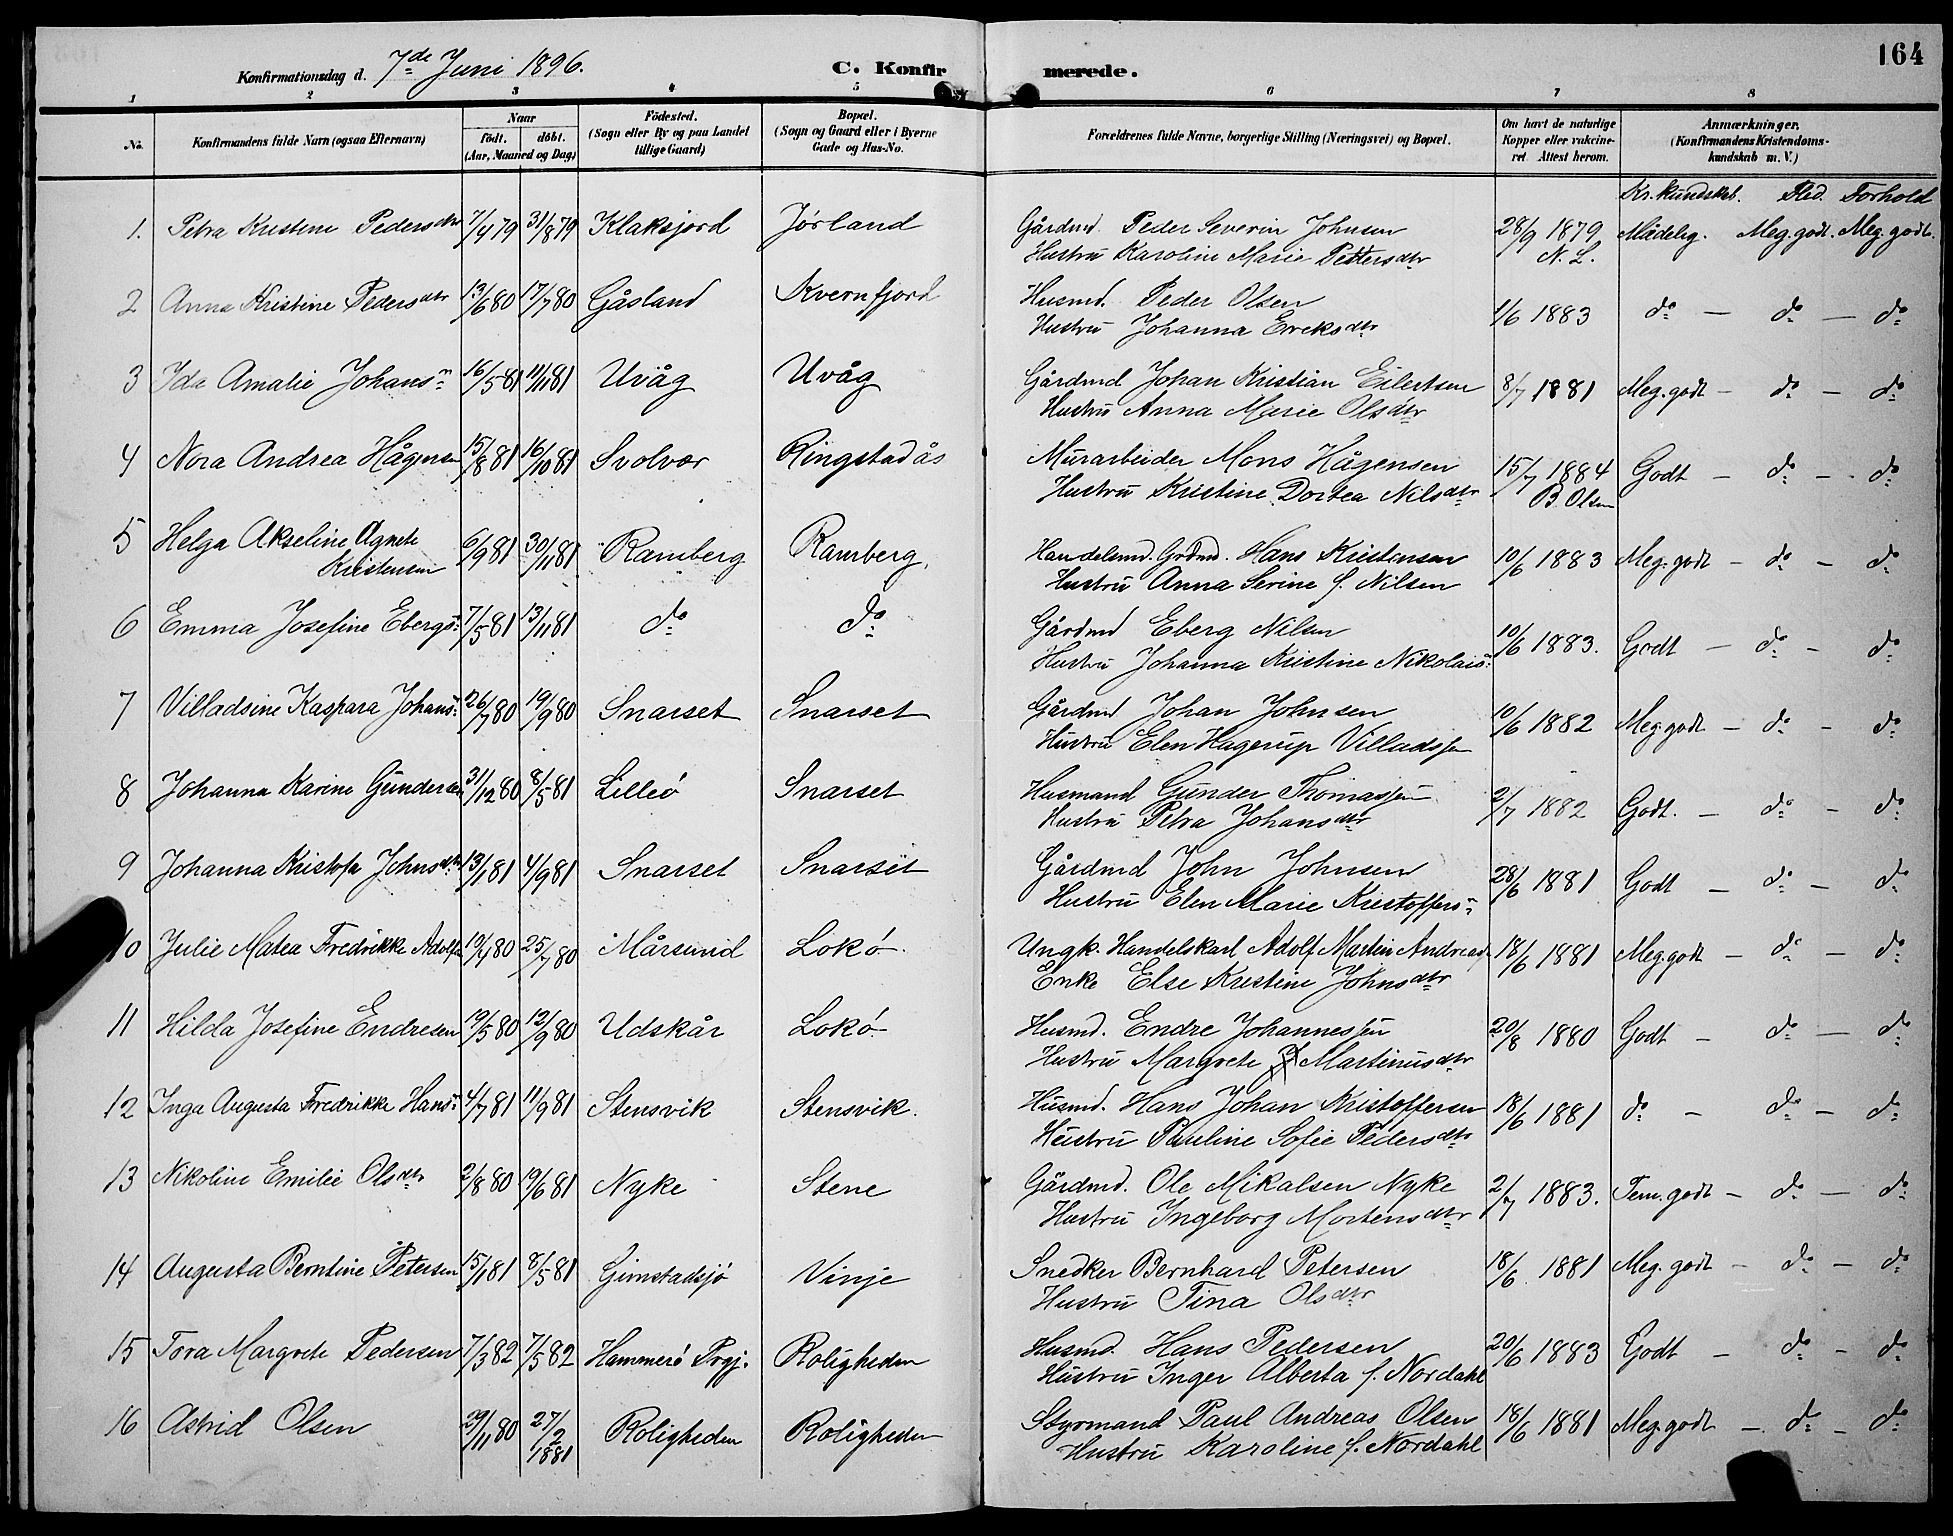 164
Konfirmationsdag d. 7de Juni 1896. C. Konfirmerede.
1 2 3 4 5 6 7 8
No. Konfirmandens fulde Navn (ogsaa Efternavn) Naar födt. döbt. (Aar, Maaned og Dag) Födested. (Sogn eller By og paa Landet tillige Gaard) Bopæl. (Sogn og Gaard eller i Byerne Gade og Hus-No. Forældrenes fulde Navne, borgerlige Stilling (Næringsvei) og Bopæl. Om havt de naturlige Kopper eller vakcineret. Attest herom. Anmærkninger. (Konfirmandens Kristendomskundskab m. V.)
Kr. kundskab. Flid. Forhold
1. Petra Kristine Pedersdtr 7/4 79 31/8 79 Klaksjord Jørland Gårdmd. Peder Severin Johnsen 28/9 1879 Mådelig. Meg. godt. Meg. godt.
Hustru Karoline Marie Pettersdtr N. L.
2 Anna Kristine Pedersdtr 13/6 80 17/7 80 Gåsland Kvernfjord Husmd. Peder Olsen 1/6 1883 do — do — do
Hustru Johanna Ereksdtr
3 Ida Amalie Johans: 16/5 81 11/11 81 Uvåg Uvåg Gårdmd Johan Kristian Eilertsen 8/7 1881 Meg. godt — do — do
Hustru Anna Marie Olsdtr
4 Nora Andrea Hågensen 15/8 81 16/10 81 Svolvær Ringstadås Murarbeider Mons Hågensen 15/7 1884 Godt — do — do
Hustru Kristine Dortea Nilsdtr B. Olsen
5 Helga Akseline Agnete 6/9 81 30/11 81 Ramberg Ramberg. Handelsmd. Grdmd. Hans Kristensen 10/6 1883 Meg. godt — do — do
Kristensen Hustru Anna Serine f. Nilsen
6 Emma Josefine Ebergs: 7/5 81 13/11 81 do do Gårdmd Eberg Nilsen 10/6 1883. Godt — do — do
Hustru Johanna Kristine Nikolais:
7 Villadsine Kaspara Johans: 26/7 80 19/9 80 Snarset Snarset Gårdmd Johan Johnsen 10/6 1882 Meg. godt — do — do
Hustru Elen Hagerup Villadssen
8 Johanna Karine Gundersen 31/12 80 8/5 81 Lilleö Snarset Husmand Gunder Thomassen 2/7 1882 Godt. — do — do
Hustru Petra Johansdtr
9 Johanna Kristofa Johnsdtr 13/1 81 4/9 81 Snarset Snarset Gårdmd John Johnsen 28/6 1881 Godt — do — do
Hustru Elen Marie Kristoffers:
10 Julie Matea Fredrikke Adolfsen 19/4 80 25/7 80 Mårsund Lokö Ungk. Handelskarl Adolf Martin Andreas 18/6 1881 Meg. godt — do — do
Enke Else Kristine Johnsdtr
11 Hilda Josefine Endresen 19/5 80 12/9 80 Udskår Lokö Husmd. Endre Johannessen 20/8 1880 Godt — do — do
Hustru Margrete Martinusdtr
12 Inga Augusta Fredrikke Hans: 4/7 81 11/9 81 Stensvik Stensvik. Husmd. Hans Johan Kristoffersen 18/6 1881 do — do — do
Hustru Pauline Sofie Pedersdtr
13 Nikoline Emilie Olsdtr 2/8 80 19/6 81 Nyke Stene Gårdmd. Ole Mikalsen Nyke 2/7 1883. Tem. godt — do — do
Hustru Ingeborg Mortensdtr
14 Augusta Berntine Petersen 15/1 81 8/5 81 Gimstadsjö Vinje Snedker Bernhard Petersen 18/6 1881 Meg. godt — do — do
Hustru Tina Olsdtr
15 Tora Margrete Pedersen 7/3 82 7/5 82 Hammerö Prgj. Roligheden Husmd. Hans Pedersen 20/6 1883 Godt — do — do
Hustru Inger Alberta f. Nordahl
16 Astrid Olsen 29/11 80 27/2 1881 Roligheden Roligheden Styrmand Paul Andreas Olsen 18/6 1881 Meg. godt — do — do
Hustru Karoline f. Nordahl